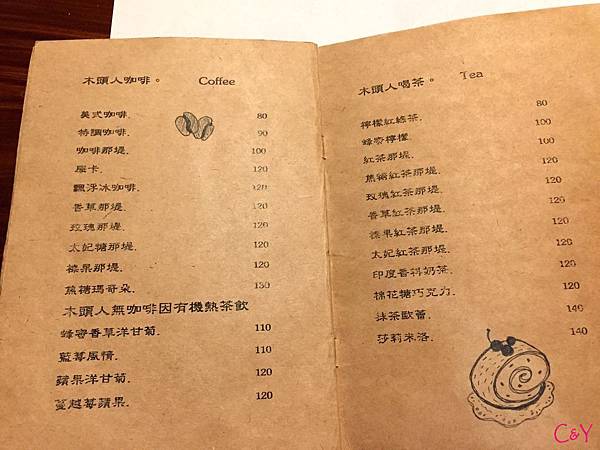 木頭人咖啡。 Coffee
美式咖啡. 80
特調咖啡. 90
咖啡那堤. 100
摩卡. 120
飄浮冰咖啡. 120
香草那堤. 120
玫瑰那堤. 120
太妃糖那堤. 120
榛果那堤. 120
焦糖瑪奇朵. 130
木頭人無咖啡因有機熱茶飲
蜂蜜香草洋甘菊. 110
藍莓風情. 110
蘋果洋甘菊. 120
蔓越莓蘋果. 120
木頭人喝茶。 Tea
檸檬紅綠茶. 80
蜂蜜檸檬. 100
紅茶那堤. 100
焦糖紅茶那堤. 120
玫瑰紅茶那堤. 120
香草紅茶那堤. 120
榛果紅茶那堤. 120
太妃紅茶那堤. 120
印度香料奶茶. 120
棉花糖巧克力. 120
抹茶歐蕾. 140
莎莉米洛. 140
C&Y